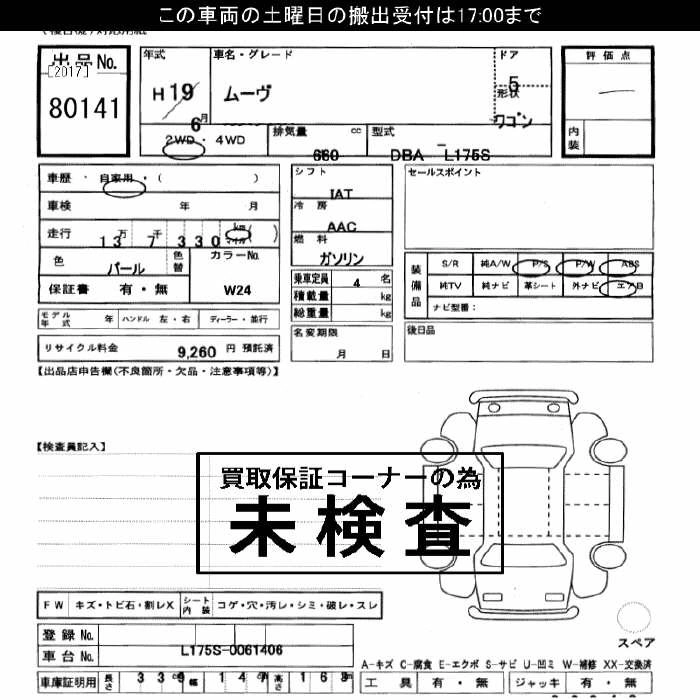 この車両の土曜日の搬出受付は17:00まで
出品No.
[2017]
80141
年式
H19
6月
車名・グレード
ムーヴ
ドア
5
形状
ワゴン
評価点
内装
2WD・4WD
排気量 cc
660
型式
DBA - L175S
車歴・自家用・( )
車検 年 月
走行 万 千 km マイル ( )
13 7 330
色
パール
色替
カラーNo.
W24
保証書 有・無
シフト
IAT
冷房
AAC
燃料
ガソリン
乗車定員 4 名
積載量 kg
総重量 kg
セールスポイント
装備品
S/R 純A/W P/S P/W ABS
純TV 純ナビ 革シート 外ナビ エアB
ナビ型番:
モデル年式 年 ハンドル 左・右 ディーラー・並行
リサイクル料金 9,260 円 預託済
名変期限
月 日
後日品
【出品店申告欄(不良箇所・欠品・注意事項等)】
【検査員記入】
買取保証コーナーの為
未検査
FW キズ・トビ石・割レX シート内装 コゲ・穴・汚レ・シミ・破レ・スレ
登録No.
車台No. L175S-0061406
車庫証明用 長さ 339 幅 147 高さ 168
スペア
A-キズ C-腐食 E-エクボ S-サビ U-凹ミ W-補修 XX-交換済
工具 有・無 ジャッキ 有・無